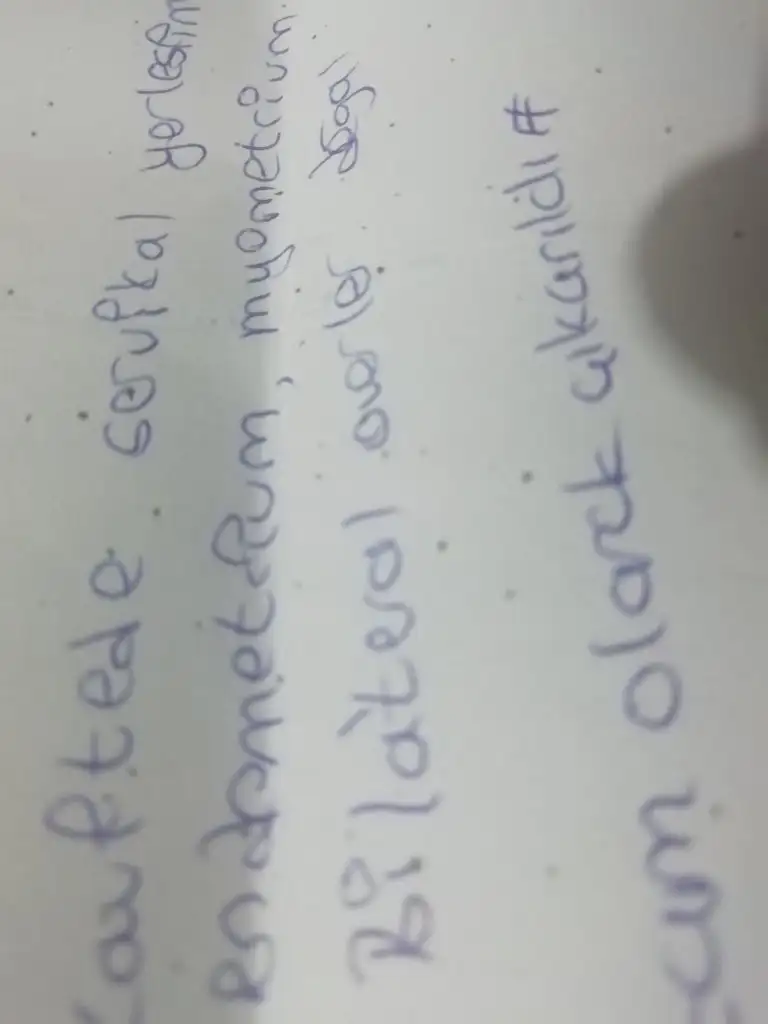 Kavitede servikal yerleşim
Endometrium, myometrium
Bilateral over doğal
cm olarak çıkarıldı #